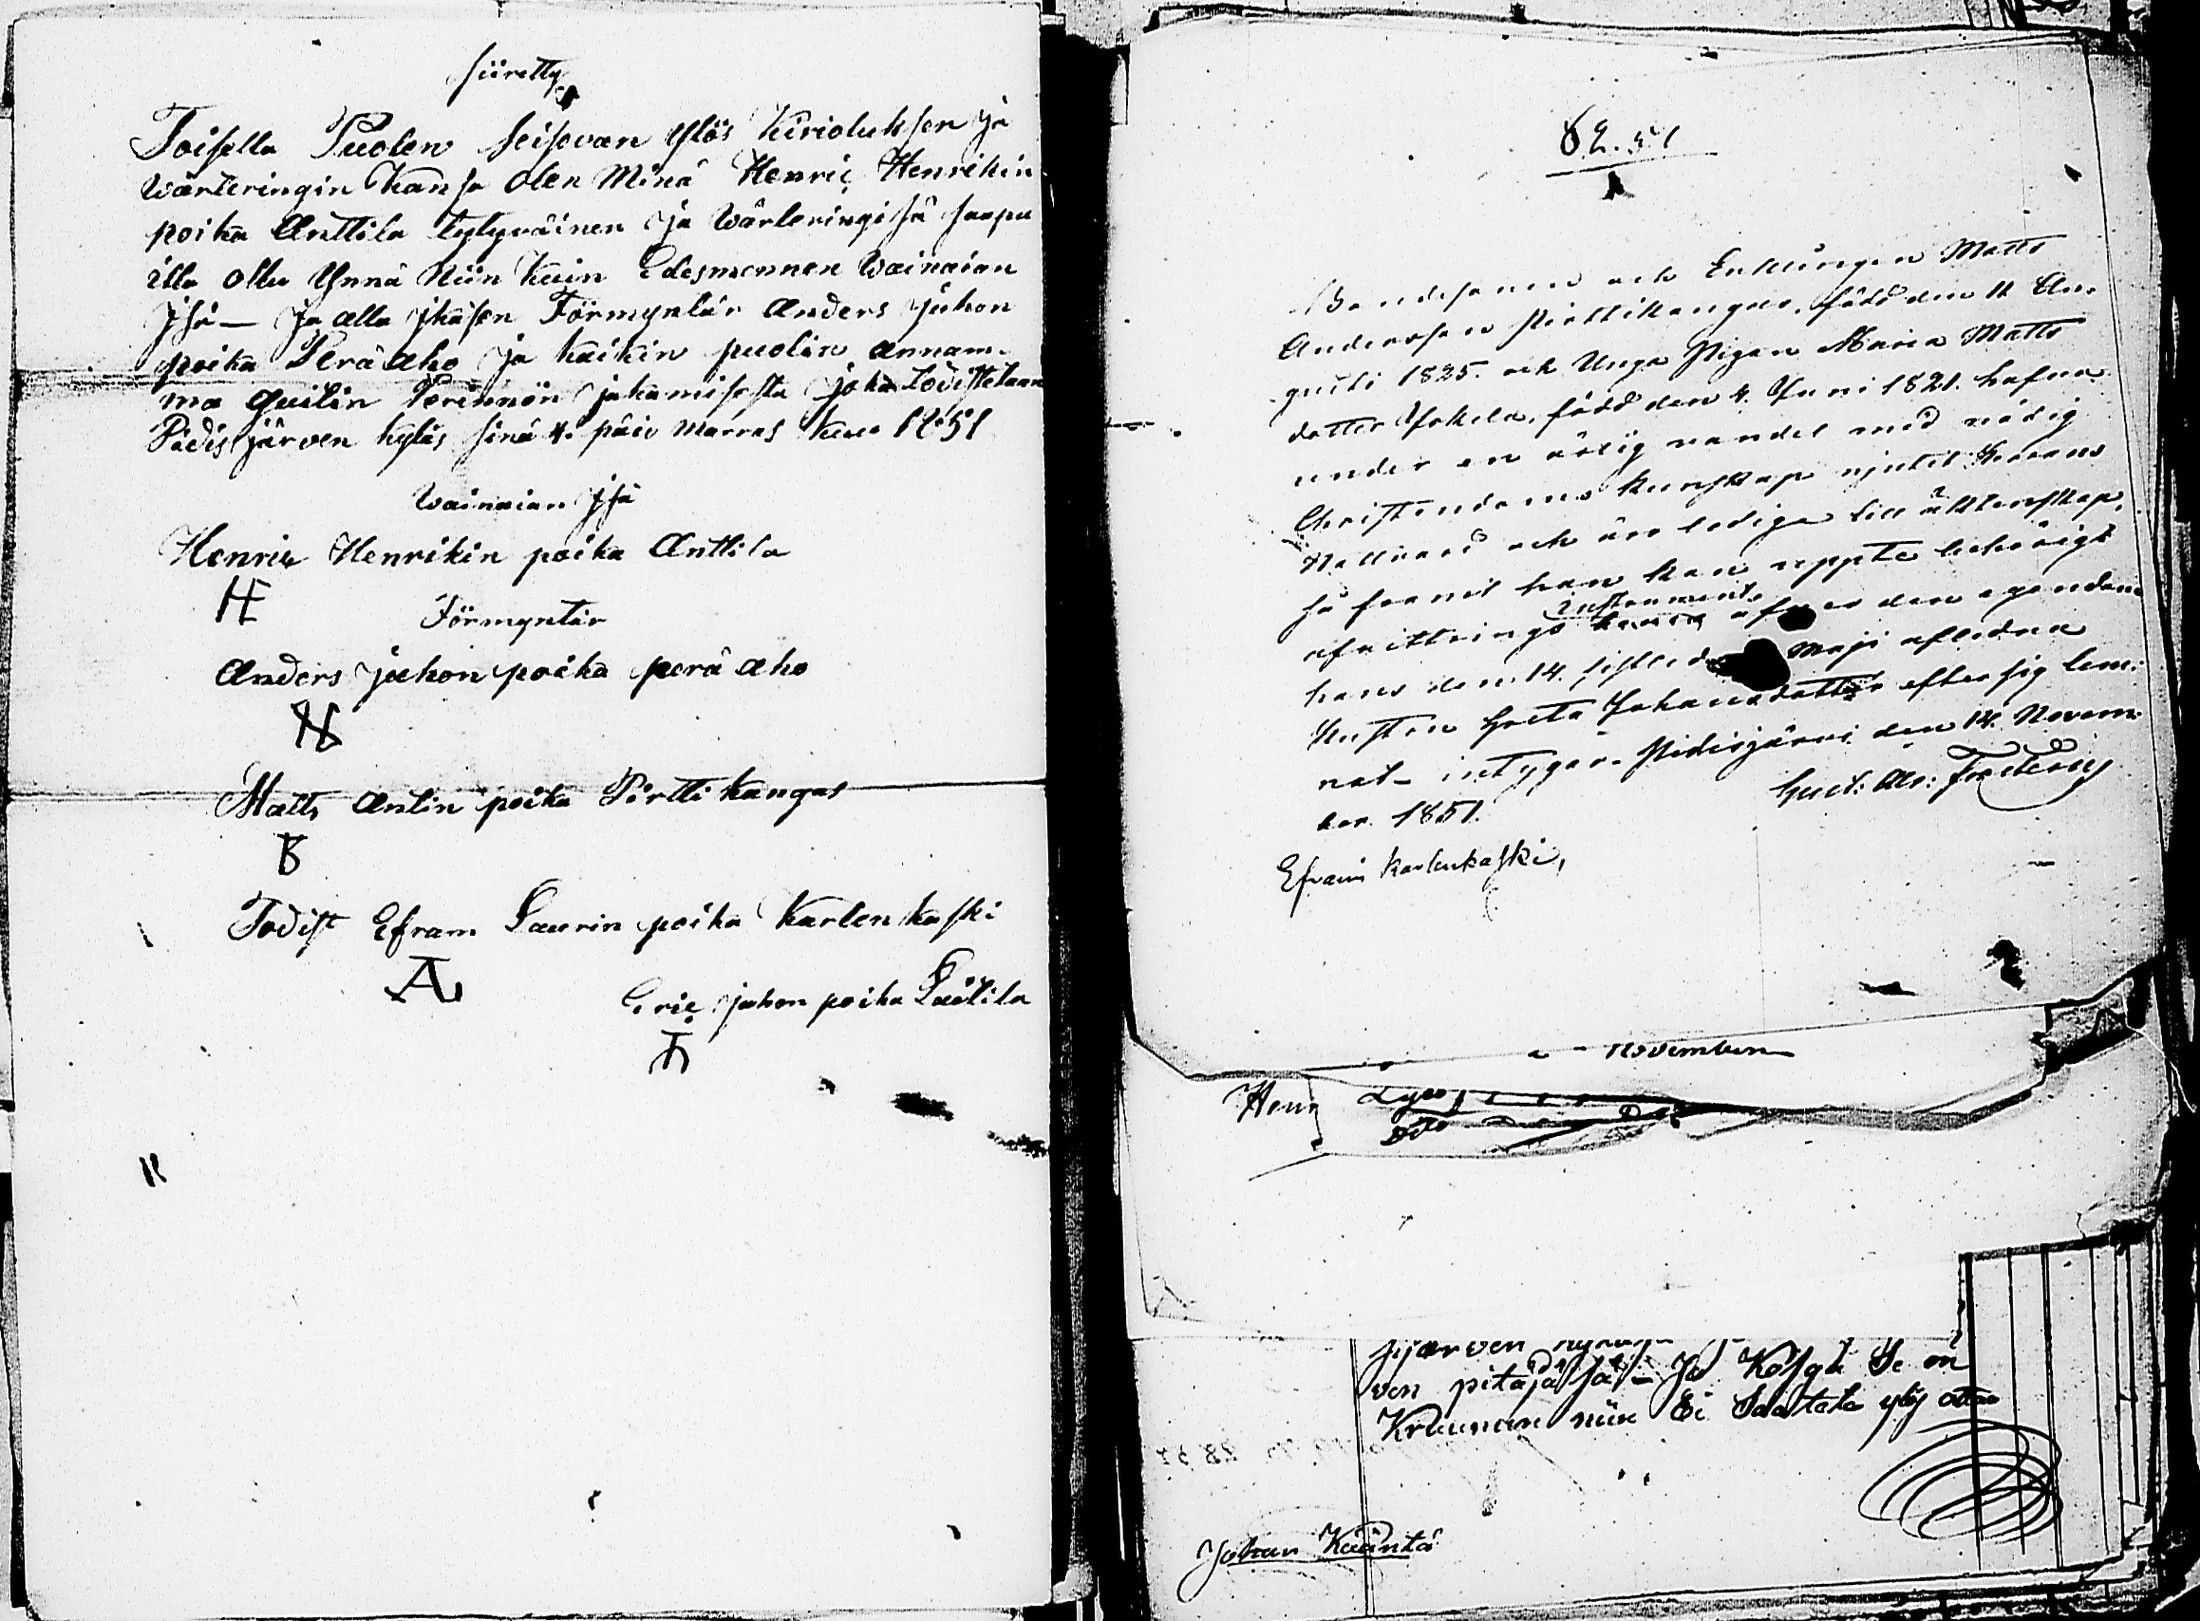 siiretty
Toisella Puolen seisovan Ylös Kirioluksen ja
Wärteringin Kansa olen Minä Henric Henrikin
poika Anttila tytyväinen ja Wärteringisä saapu
illa ollu Ynnä Niin kuin Edesmennen Wainaian
Jsä — Ja alla jkäsen Förmyntär Anders Juhon
poika Perä aho ja kaikin puolin annam-
ma Quitin Perinnön jakamisesta joka todistetaan
Pidisjärven kyläs sinä 4. päiv marras kuu 1851
Wainaian Jsä
Henric Henrikin poika Anttila
Förmyntär
Anders juhon poika perä aho
Matts Antin poika Pirttikangas
Todist Efram Laurin poika Karlenkaski
Eric juhon poika
82. 51
Bondesonen och Enklingen Matts
Andersson Pirttikangas, född den 11 Au-
gusti 1825. och Unga Pigan Maria Matts
dotter Jokela, född den 4. Juni 1821. hafva
under en ärlig vandel med nödig
Christendoms kunskap njutit Herrans
Nattvard och äro lediga till äktenskap,
så framt han kan uppte behörigt
afvittrings instrument af den egendom
hans den 14. sistled Maji aflidna
Hustru Greta Johansdotter efter sig lem-
nat – intygar. Pidisjärvi den 14. Novem-
ber 1851.
Efraim Karlukaski,
November
Henr
von pitäjäsä – Ja Koska Se on
Kruunun niin Ei Saateta ylös ottaa
Johan Kääntä